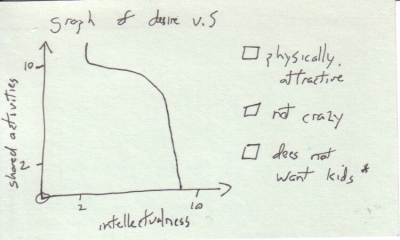 graph of desire v.5
10
2
shared activities
2
10
intellectualness
physically
attractive
not crazy
does not
want kids*